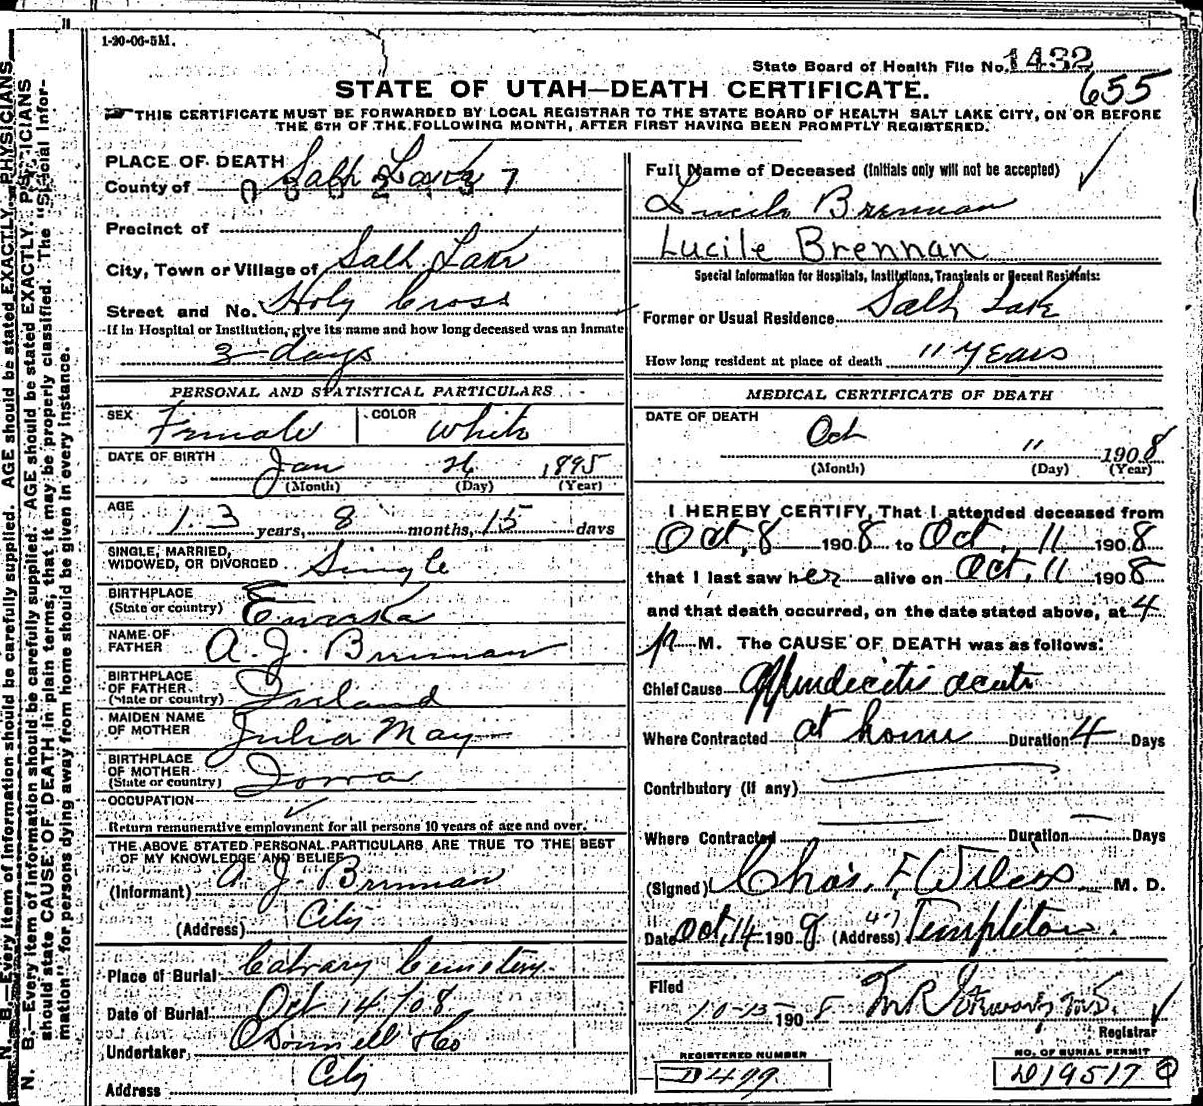 1-20-06-5M.
State Board of Health File No. 1432
655
STATE OF UTAH—DEATH CERTIFICATE.
THIS CERTIFICATE MUST BE FORWARDED BY LOCAL REGISTRAR TO THE STATE BOARD OF HEALTH SALT LAKE CITY, ON OR BEFORE
THE 5TH OF THE FOLLOWING MONTH, AFTER FIRST HAVING BEEN PROMPTLY REGISTERED.
N. B.—Every item of information should be carefully supplied. AGE should be stated EXACTLY. PHYSICIANS
should state CAUSE OF DEATH in plain terms, that it may be properly classified. The "Special Infor-
mation" for persons dying away from home should be given in every instance.
PLACE OF DEATH
County of Salt Lake
Precinct of
City, Town or Village of Salt Lake
Street and No. Holy Cross
If in Hospital or Institution, give its name and how long deceased was an Inmate
3 days
PERSONAL AND STATISTICAL PARTICULARS
SEX Female COLOR White
DATE OF BIRTH Jan 26 1895
(Month) (Day) (Year)
AGE 13 years, 8 months, 15 days
SINGLE, MARRIED,
WIDOWED, OR DIVORCED. Single
BIRTHPLACE
(State or country) Eureka
NAME OF
FATHER A. J. Brennan
BIRTHPLACE
OF FATHER
(State or country) Ireland
MAIDEN NAME
OF MOTHER Julia May
BIRTHPLACE
OF MOTHER
(State or country) Iowa
OCCUPATION
Return remunerative employment for all persons 10 years of age and over.
THE ABOVE STATED PERSONAL PARTICULARS ARE TRUE TO THE BEST
OF MY KNOWLEDGE AND BELIEF
(Informant) A. J. Brennan
(Address) City
Place of Burial Calvary Cemetery
Date of Burial Oct 14/08
Undertaker O'Donnell & Co
Address City
Full Name of Deceased (Initials only will not be accepted)
Lucile Brennan
Lucile Brennan
Special Information for Hospitals, Institutions, Transients or Recent Residents:
Former or Usual Residence Salt Lake
How long resident at place of death 11 years
MEDICAL CERTIFICATE OF DEATH
DATE OF DEATH
Oct 11 1908
(Month) (Day) (Year)
I HEREBY CERTIFY, That I attended deceased from
Oct, 8 1908 to Oct. 11 1908
that I last saw her alive on Oct. 11 1908
and that death occurred, on the date stated above, at 4
p M. The CAUSE OF DEATH was as follows:
Chief Cause Appendicitis acute
Where Contracted at home Duration 4 Days
Contributory (if any)
Where Contracted Duration Days
(Signed) Chas. F. Wilcox M. D.
Date Oct, 14 1908 (Address) 47 Templeton.
Filed
10-15 1908
Registrar
REGISTERED NUMBER
D499
NO. OF BURIAL PERMIT
D19517